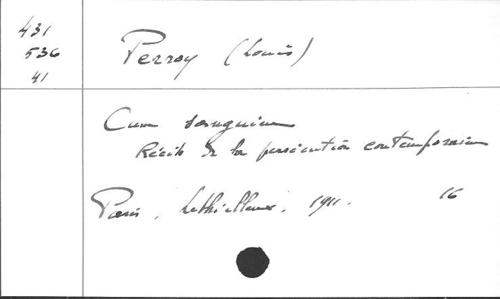 431
536
41
Perroy (Louis)
Cum sanguine
Récits de la persécution contemporaine
Paris, Lethielleux, 1911. 16